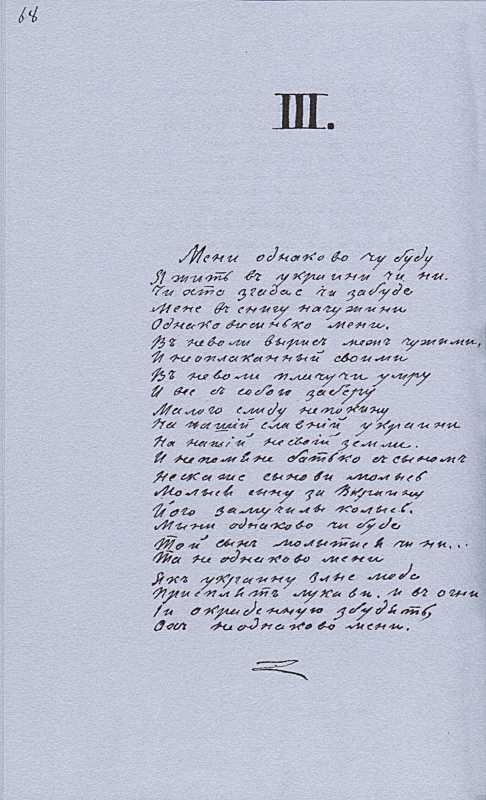 68
III.
Мени однаково чу буду
Я жить въ украини чи ни.
Чи хто згадас чи забуде
Мене въ снигу начужини
Однаковисинько мени.
Въ неволи вырисъ межъ чужими,
И неоплаканный своими
Въ неволи плачучи умру
И все съ собою заберу
Малого слиду непокину
На нашій славній украини
На нашій несвоій земли.
И непомяне батько съ сыномъ
Нескаже сынови молысь
Молысь сыну за Вкраину
Його замучилы колысь.
Мини однаково чи буде
Той сынъ молытися чи ни...
Та не однаково мени
Якъ украину злые люде
Присплятъ лукави. и въ огни
Іи окраденную збудить,
Охъ неоднаково мени.